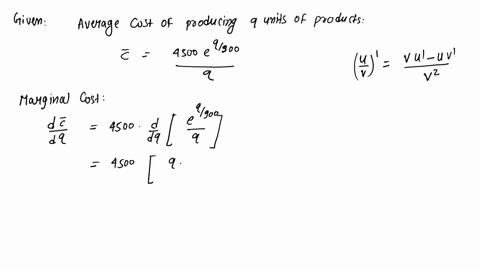 Given: Average Cost of producing q units of products:
c̄ = 4500 e^{q/900} / q
(u/v)' = (v u' - u v') / v²
Marginal Cost:
dc̄/dq = 4500 · d/dq [ e^{q/900} / q ]
= 4500 [ q ·